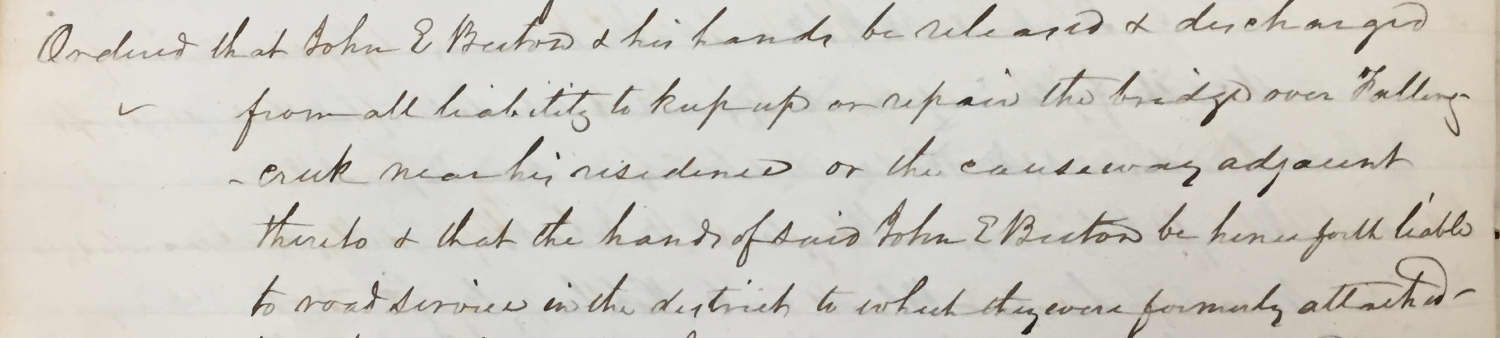 Ordered that John E Beeton & his hands be released & discharged
from all liability to keep up or repair the bridge over Falling-
-creek near his residence or the causeway adjacent
thereto & that the hands of said John E Beeton be henceforth liable
to road service in the district to which they were formerly attached-